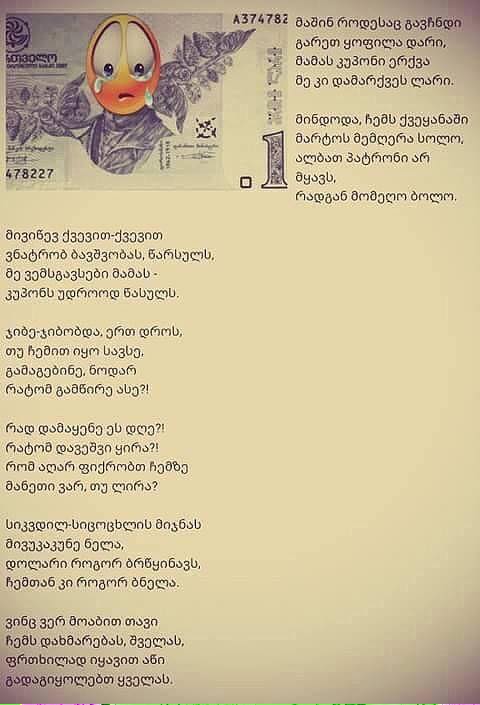 A374782
478227
1
მაშინ როდესაც გავჩნდი
გარეთ ყოფილა დარი,
მამას კუპონი ერქვა
მე კი დამარქვეს ლარი.
მინდოდა, ჩემს ქვეყანაში
მარტოს მემღერა სოლო,
ალბათ პატრონი არ
მყავს,
რადგან მომეღო ბოლო.
მივიწევ ქვევით-ქვევით
ვნატრობ ბავშვობას, წარსულს,
მე ვემსგავსები მამას -
კუპონს უდროოდ წასულს.
ჯიბე-ჯიბობდა, ერთ დროს,
თუ ჩემით იყო სავსე,
გამაგებინე, ნოდარ
რატომ გამწირე ასე?!
რად დამაყენე ეს დღე?!
რატომ დავეშვი ყირა?!
რომ აღარ ფიქრობთ ჩემზე
მანეთი ვარ, თუ ლირა?
სიკვდილ-სიცოცხლის მიჯნას
მივუკაკუნე ნელა,
დოლარი როგორ ბრწყინავს,
ჩემთან კი როგორ ბნელა.
ვინც ვერ მოაბით თავი
ჩემს დახმარებას, შველას,
ფრთხილად იყავით აწი
გადაგიყოლებთ ყველას.